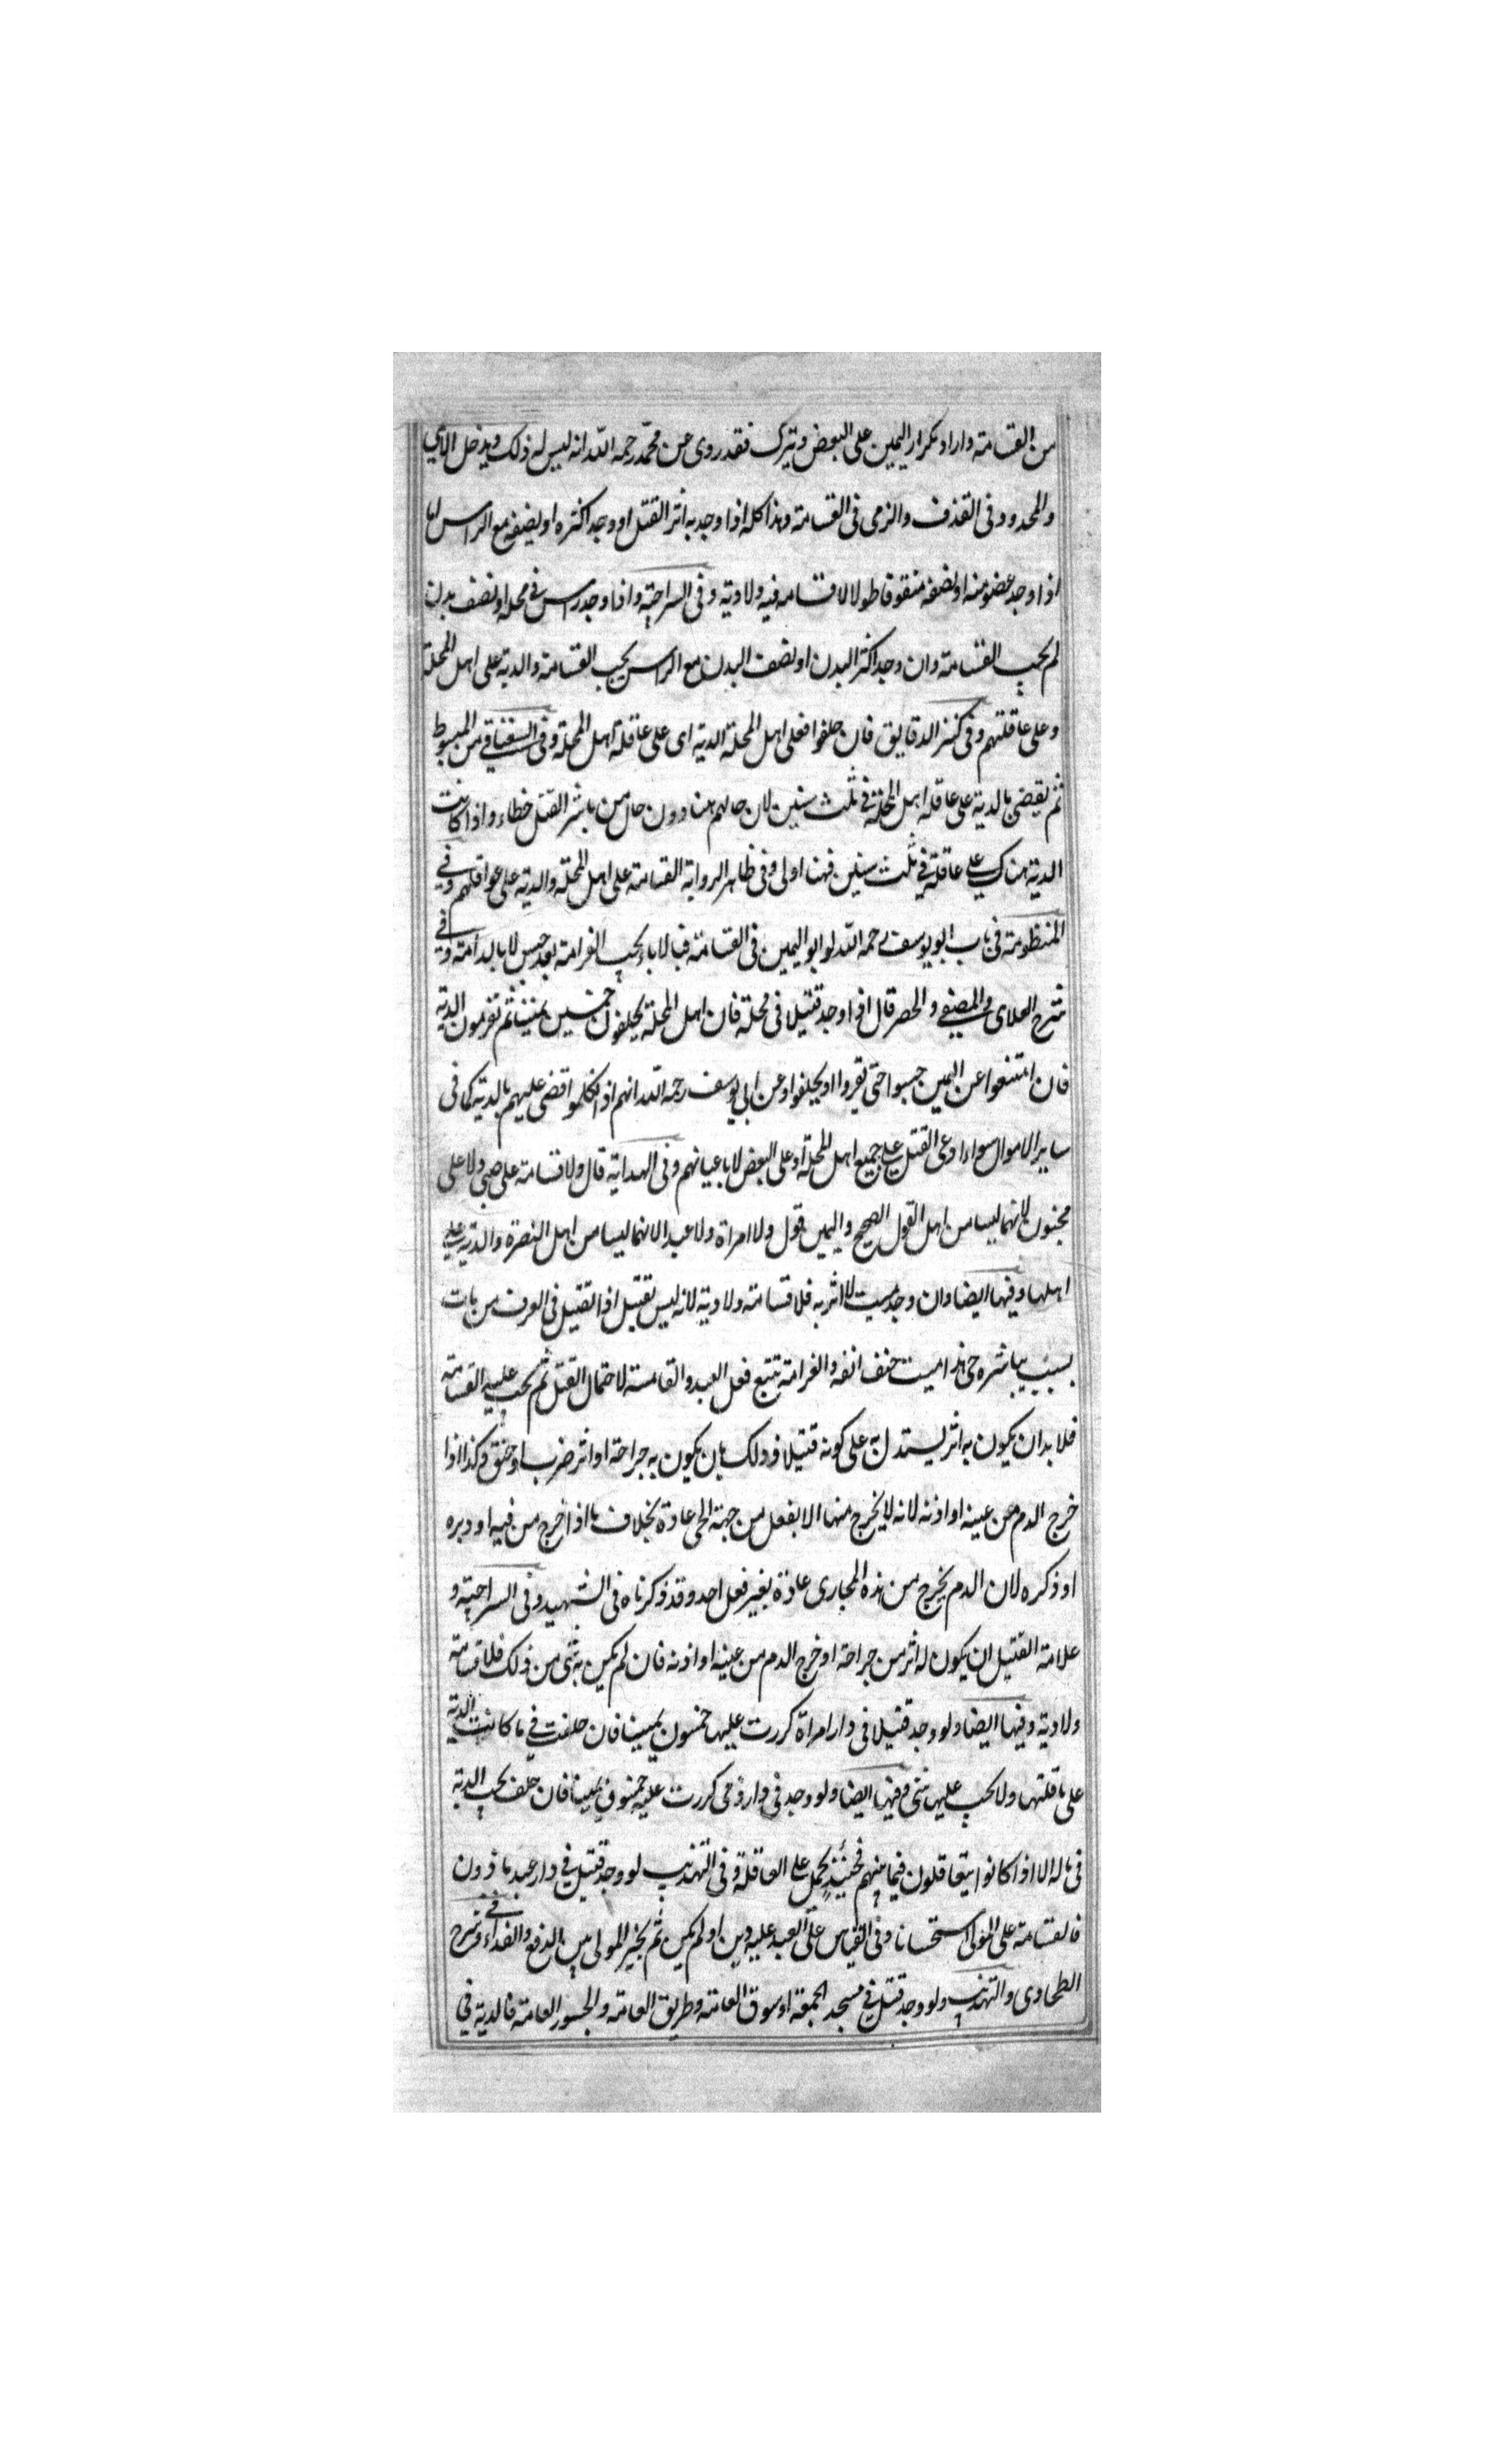 من القسامة واراد تكرار اليمين على البعض وتيرك فقد روى عن محمد رحمه الله انه ليس له ذلك ويدخل الاعمى
والمحدود فى القذف والذمى فى القسامة وهذا كله اذا وجد به اثر القتل او وجد اكثره او نصفه مع الراس اما
اذا وجد عضو منه او نصفه مشقوقا طولا لا قسامة فيه ولا دية وفى السراجية واذا وجد راس فى محلة او نصف بدن
لم يجب القسامة وان وجد اكثر البدن او نصف البدن مع الراس يجب القسامة والدية على اهل المحلة
وعلى عاقلتهم وفى كنز الدقايق فان حلفوا فعلى اهل المحلة الدية اى على عاقلة اهل المحلة وفى السغناقى من المبسوط
ثم يقضى بالدية على عاقلة اهل المحلة فى ثلث سنين لان حالهم هنا دون حال من باشر القتل خطاء واذا كانت
الدية هناك على عاقلة فى ثلث سنين فهنا اولى وفى ظاهر الرواية القسامة على اهل المحلة والدية على عواقلهم وفى
المنظومة فى باب ابو يوسف رحمه الله لو ابو اليمين فى القسامة فبالاباء يجب الغرامة بعد حبس لا بالدامة وفى
شرح العلاى والمصفى والحصر قال اذا وجد قتيلا فى محلة فان اهل المحلة يحلفون خمسين يمينا ثم تغرمون الدية
فان امتنعوا عن اليمين حبسوا حتى يقروا او يحلفوا وعن ابى يوسف رحمه الله انهم اذا نكلموا قضى عليهم بالدية كما فى
ساير الاموال سواء ادعى القتل على جميع اهل المحلة او على البعض لا باعيانهم وفى الهداية قال ولا قسامة على صبى ولا على
مجنون لانهما ليسا من اهل القول الصحيح واليمين قول ولا امراة ولا عبد لانهما ليسا من اهل النصرة والدية على
اهلها وفيها ايضا وان وجد ميت لا اثر به فلا قسامة ولا دية لانه ليس بقتيل اذا لقتيل فى العرف من بات
بسبب يباشره حى هذا ميت حتف انفه والغرامة تتبع فعل العبد والقسامة لاحتمال القتل ثم يجب عليه القسامة
فلا بد ان يكون به اثر يستدل به على كونه قتيلا وذلك بان يكون به جراحة او اثر ضرب او خنق وكذا اذا
خرج الدم من عينه او اذنه لانه لا يخرج منها الا بفعل من جهة الحى عادة بخلاف ما اذا خرج من فيه او دبره
او ذكره لان الدم يخرج من هذه المجارى عادة بغير فعل احد وقد ذكرناه فى الشهيد وفى السراجية و
علامة القتيل ان يكون له اثر من جراحة او خرج الدم من عينه او اذنه فان لم يكن به شى من ذلك فلا قسامة
ولا دية وفيها ايضا ولو وجد قتيلا فى دار امراة كررت عليها خمسون يمينا فان حلفت فى ما كانت الدية
على عاقلتها ولا يجب عليها شى وفيها ايضا ولو وجد فى دار ذمى كررت عليه خمسون يمينا فان حلف يجب الدية
فى ماله الا اذا كانوا يتعاقلون فيما بينهم فحينئذ يحمل على العاقلة وفى التهذيب لو وجد قتيل فى دار عبد ماذون
فالقسامة على المولى استحسانا وفى القياس على العبد عليه دين او لم يكن ثم يخير المولى بين الدفع والفداء وفى شرح
الطحاوى والتهذيب ولو وجد قتيل فى مسجد الجمعة او سوق العامة وطريق العامة والجسور العامة فالدية فى